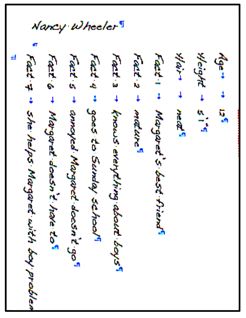 Nancy Wheeler
Age 13
Height 5'1"
Hair neat
Fact 1 Margaret's best friend
Fact 2 mature
Fact 3 knows everything about boys
Fact 4 goes to Sunday school
Fact 5 annoyed Margaret doesn't go
Fact 6 Margaret doesn't have to
Fact 7 she helps Margaret with boy problem